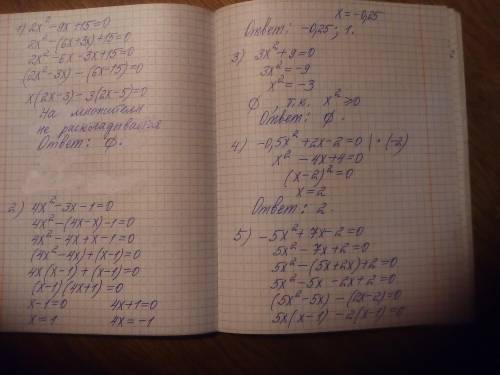 1) 2x² - 9x + 15 = 0
2x² - (6x+3x) + 15 = 0
2x² - 6x - 3x + 15 = 0
(2x² - 3x) - (6x - 15) = 0
x(2x-3) - 3(2x-5) = 0
На множители
не раскладывается
Ответ: ∅.
2) 4x² - 3x - 1 = 0
4x² - (4x - x) - 1 = 0
4x² - 4x + x - 1 = 0
(4x² - 4x) + (x-1) = 0
4x(x-1) + (x-1) = 0
(x-1)(4x+1) = 0
x-1=0 4x+1=0
x=1 4x=-1
x=-0,25
Ответ: -0,25; 1.
3) 3x² + 9 = 0
3x² = -9
x² = -3
∅, т.к. x² ≥ 0
Ответ: ∅.
4) -0,5x² + 2x - 2 = 0 | · (-2)
x² - 4x + 4 = 0
(x-2)² = 0
x = 2
Ответ: 2.
5) -5x² + 7x - 2 = 0
5x² - 7x + 2 = 0
5x² - (5x+2x) + 2 = 0
5x² - 5x - 2x + 2 = 0
(5x² - 5x) - (2x-2) = 0
5x(x-1) - 2(x-1) = 0